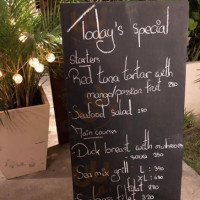 Today's special
starters
Red tuna tartar with
mango/passion fruit 290
Seafood salad 290
Main courses
- Duck breast with mushroom
sauce 350
- Sea mix grill L : 340
XL : 690
fillet